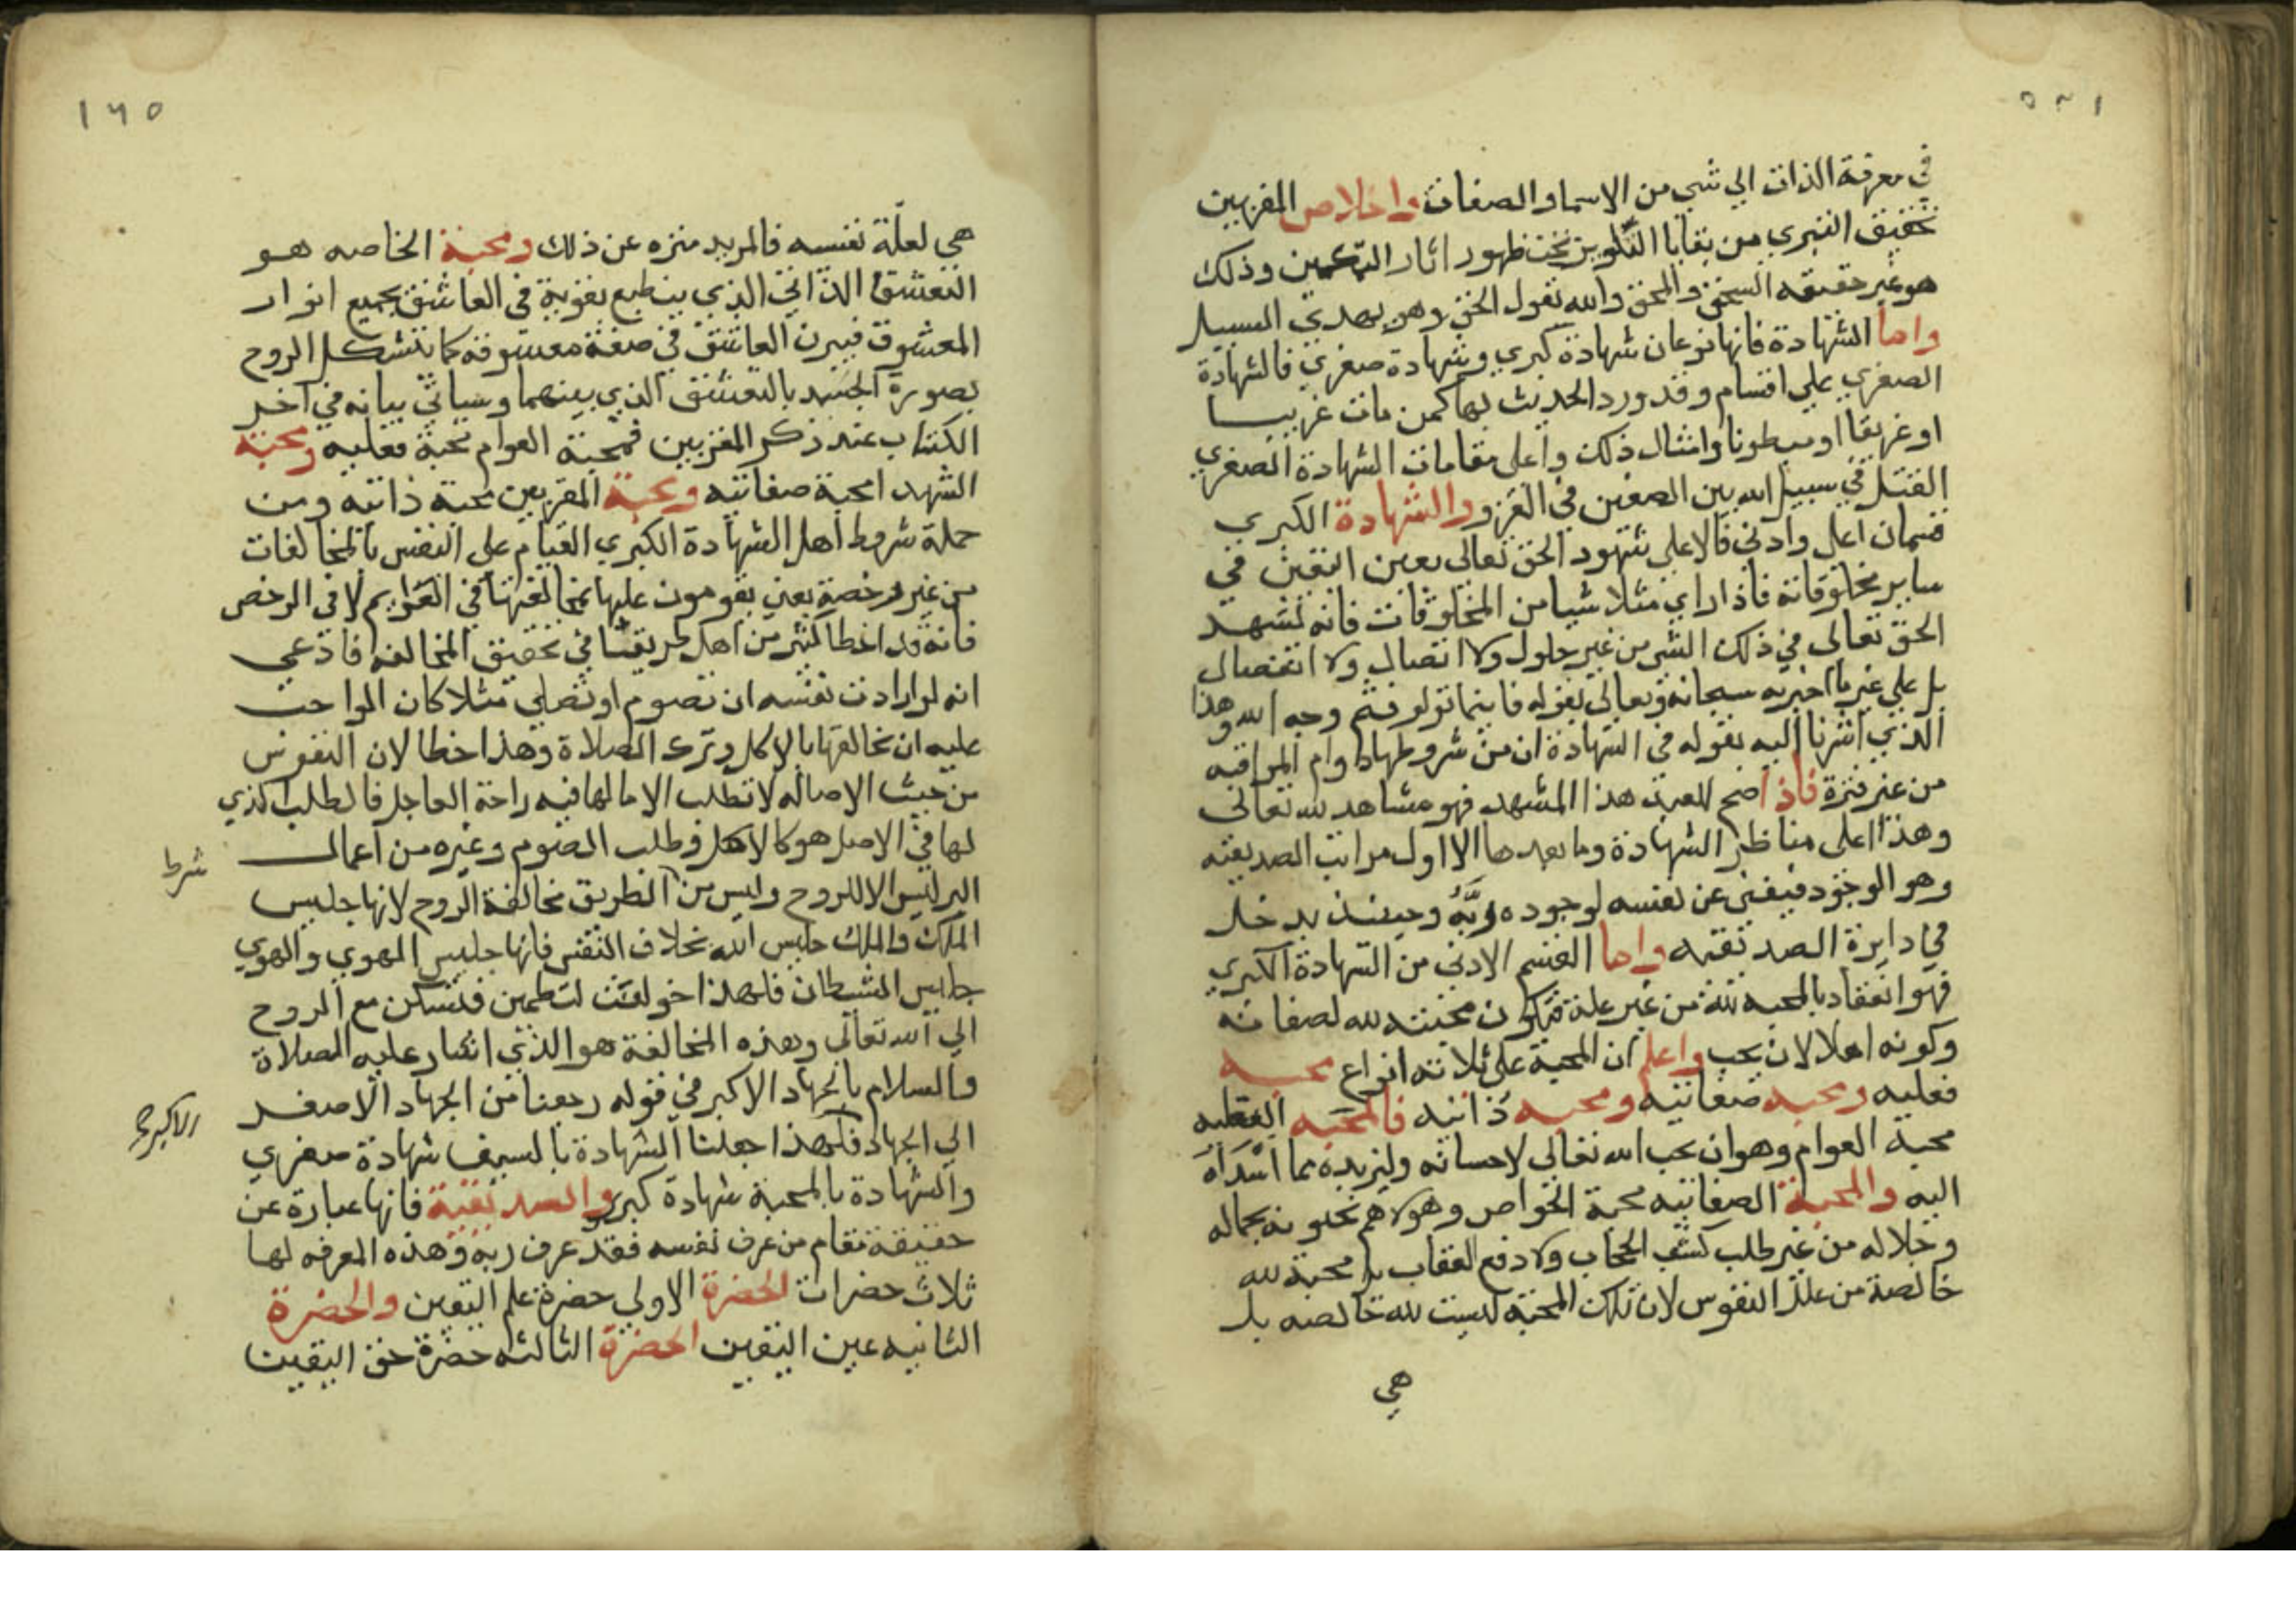 في معرفة الذات الي شي من الاسما والصفات واخلاص المقربين
تحقيق التبري من بقايا التلوين تحت ظهور اثار التكمين وذلك
هو عين حقيقه السحق والمحق والله يقول الحق وهو يهدي السبيل
واما الشهادة فانها نوعان شهادة كبري وشهادة صغري فالشهادة
الصغري علي اقسام وقد ورد الحديث بها كمن مات غريبا
او غريقا او مبطونا وامثال ذلك واعلي مقامات الشهادة الصغري
القتل في سبيل الله بين الصفين في الغزو والشهادة الكبري
قسمان اعلي وادني فالاعلي شهود الحق تعالي بعين اليقين في
ساير مخلوقاته فاذا راي مثلا شيا من المخلوقات فانه يشهد
الحق تعالي في ذلك الشي من غير حلول ولا اتصال ولا انفصال
بل علي ما اخبر به سبحانه وتعالي بقوله فاينما تولو فثم وجه الله وهذا
الذي اشرنا اليه بقوله في الشهادة ان من شروطها دوام المراقبه
من غير فترة فاذا صح للعبد هذا المشهد فهو مشاهد لله تعالي
وهذا اعلي مناظر الشهادة وما بعدها الا اول مراتب الصديقيه
وهو الوجود فيفني عن نفسه لوجود ربه وحينئذ يدخل
في دايرة الصديقيه واما القسم الادني من الشهادة الكبري
فهو انعقاد المحبه لله من غير علة فتكون محبته لله لصفاته
وكونه اهلا لان يحب واعلم ان المحبة علي ثلاثه انواع محبه
فعليه ومحبه صفاتيه ومحبه ذاتيه فالمحبه الفعليه
محبة العوام وهو ان يحب الله تعالي لاحسانه وليزيده مما اسداه
اليه والمحبة الصفاتيه محبة الخواص وهولاء هم يحبونه لجماله
وجلاله من غير طلب كشف الحجاب ولا دفع العقاب بل محبة لله
خالصة من علل النفوس لان تلك المحبة ليست لله خالصه بل
هي
١٦٥
هي لعلّة نفسه فالمريد منزه عن ذلك ومحبة الخاصه هو
التعشق الذاتي الذي ينطبع بقوته في العاشق بجميع انوار
المعشوق فيبرز العاشق في صفة معشوقه كما يتشكل الروح
بصورة الجسد بالتعشق الذي بينهما وسياتي بيانه في اخر
الكتاب عند ذكر المقربين فمحبة العوام محبة فعليه ومحبة
الشهدا محبة صفاتيه ومحبة المقربين محبة ذاتيه ومن
جملة شروط اهل الشهادة الكبري القيام علي النفس بالمخالفات
من غير رخصة يعني يقومون عليها بمخالفتها في العزايم لا في الرخص
فانه قد اخطا كثير من اهل طريقتنا في تحقيق المخالفه فادعي
انه لو ارادت نفسه ان تصوم او تصلي مثلا كان الواجب
عليه ان يخالفها بالاكل وترك الصلاة وهذا خطا لان النفوس
من حيث الاصاله لا تطلب الا ما لها فيه راحة العاجل فالطلب الذي
لها في الاصل هو كالاكل وطلب الصوم وغيره من اعمال
البر ليس الا للروح وليس من الطريق مخالفة الروح لانها جليس
شرط
الملك والملك جليس الله بخلاف النفس فانها جليس الهوي والهوي
جليس الشيطان فلهذا خولفت لتطمين فتسكن مع الروح
الي الله تعالي وهذه المخالفة هو الذي اشار عليه الصلاة
والسلام بالجهاد الاكبر في قوله رجعنا من الجهاد الاصغر
الي الجهاد فلهذا جعلنا الشهادة بالسيف شهادة صغري
الاكبر صح
والشهادة بالمحبة شهادة كبري والصديقية فانها عبارة عن
حقيقة مقام من عرف نفسه فقد عرف ربه وهذه المعرفه لها
ثلاث حضرات الحضرة الاولي حضرة علم اليقين والحضرة
الثانيه عين اليقين الحضرة الثالثه حضرة حق اليقين